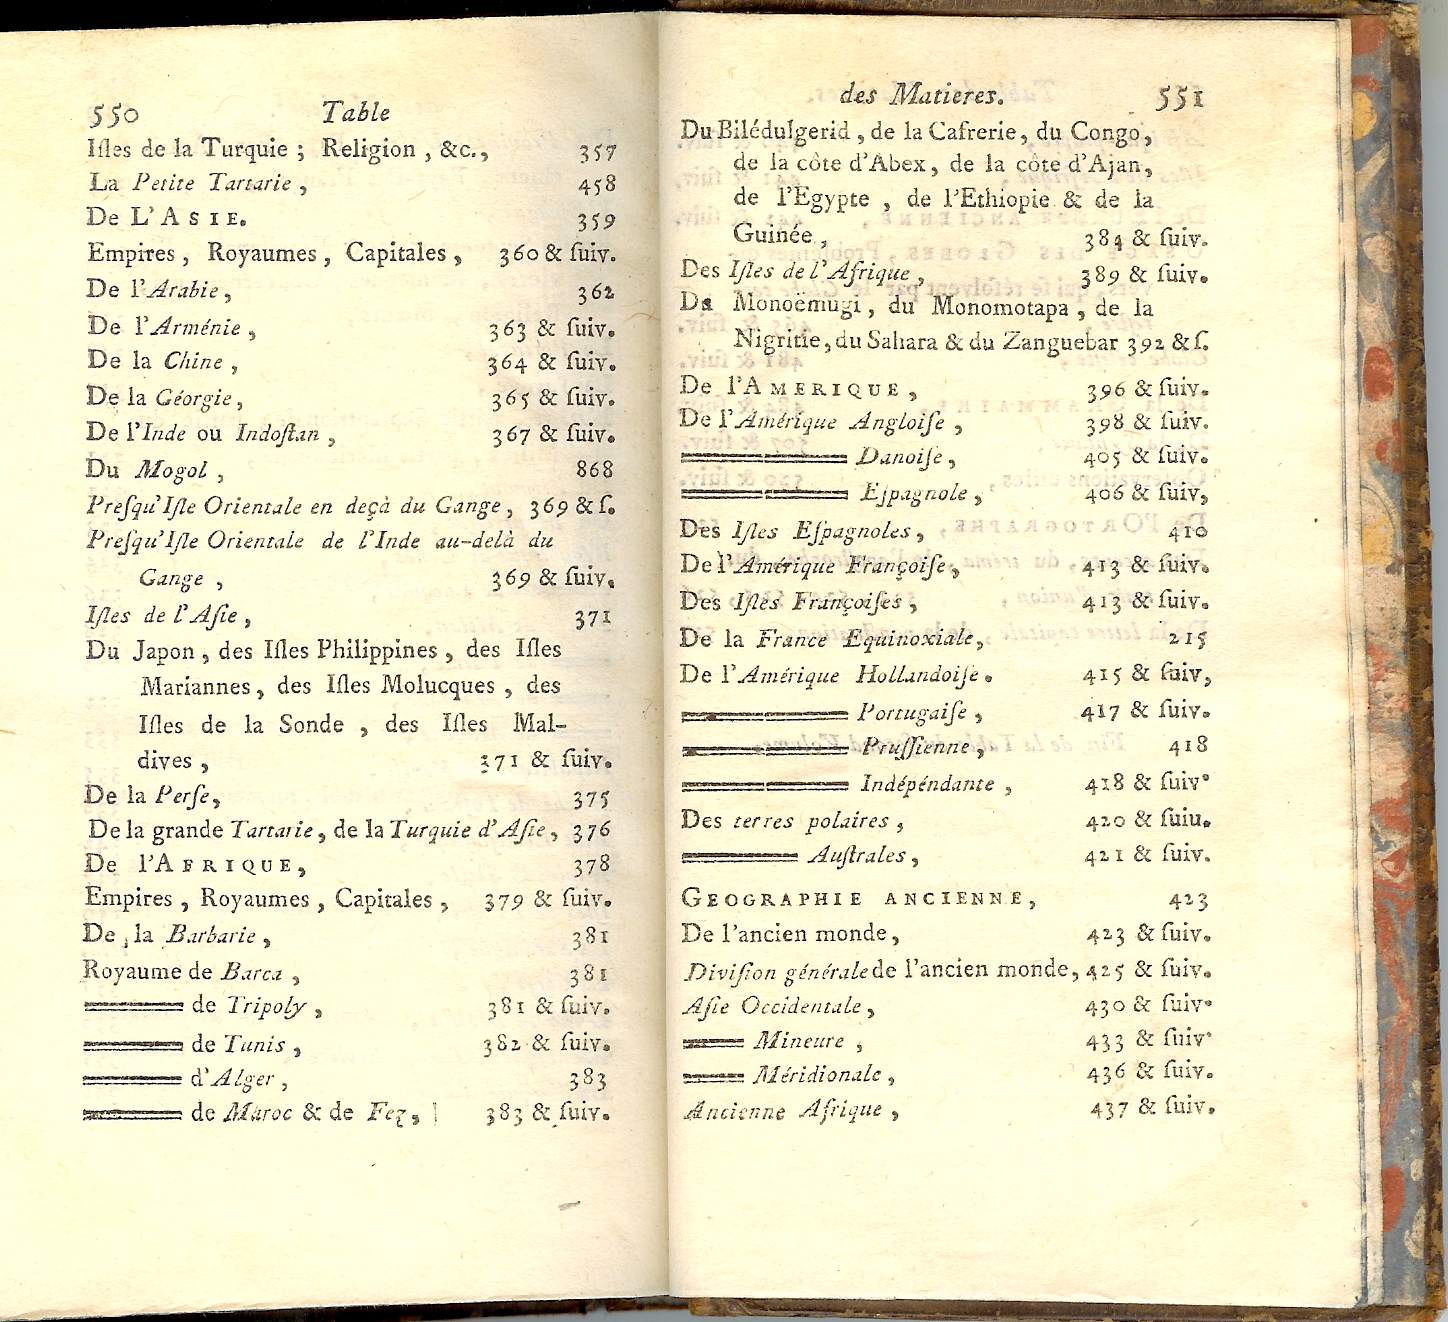 550 Table
Iſles de la Turquie ; Religion , &c., 357
La Petite Tartarie , 458
De L'ASIE. 359
Empires , Royaumes , Capitales , 360 & ſuiv.
De l'Arabie , 362
De l'Arménie , 363 & ſuiv.
De la Chine , 364 & ſuiv.
De la Géorgie, 365 & ſuiv.
De l'Inde ou Indoſtan , 367 & ſuiv.
Du Mogol , 868
Preſqu'Iſle Orientale en deçà du Gange , 369 & ſ.
Preſqu'Iſle Orientale de l'Inde au-delà du
Gange , 369 & ſuiv.
Iſles de l'Aſie , 371
Du Japon , des Iſles Philippines , des Iſles
Mariannes , des Iſles Molucques , des
Iſles de la Sonde , des Iſles Mal-
dives , 371 & ſuiv.
De la Perſe, 375
De la grande Tartarie , de la Turquie d'Aſie , 376
De l'AFRIQUE, 378
Empires , Royaumes , Capitales , 379 & ſuiv.
De la Barbarie , 381
Royaume de Barca , 381
de Tripoly , 381 & ſuiv.
de Tunis , 382 & ſuiv.
d'Alger , 383
de Maroc & de Fez , 383 & ſuiv.
des Matieres. 551
Du Bilédulgerid , de la Cafrerie, du Congo,
de la côte d'Abex, de la côte d'Ajan,
de l'Egypte , de l'Ethiopie & de la
Guinée , 384 & ſuiv.
Des Iſles de l'Afrique , 389 & ſuiv.
Du Monoëmugi , du Monomotapa , de la
Nigritie, du Sahara & du Zanguebar 392 & ſ.
De l'AMERIQUE , 396 & ſuiv.
De l'Amérique Angloiſe , 398 & ſuiv.
Danoiſe , 405 & ſuiv.
Eſpagnole , 406 & ſuiv,
Des Iſles Eſpagnoles , 410
De l'Amérique Françoiſe , 413 & ſuiv.
Des Iſles Françoiſes , 413 & ſuiv.
De la France Equinoxiale, 215
De l'Amérique Hollandoiſe . 415 & ſuiv,
Portugaiſe , 417 & ſuiv.
Pruſſienne , 418
Indépéndante , 418 & ſuiv.
Des terres polaires , 420 & ſuiu.
Auſtrales , 421 & ſuiv.
GEOGRAPHIE ANCIENNE , 423
De l'ancien monde, 423 & ſuiv.
Diviſion générale de l'ancien monde , 425 & ſuiv.
Aſie Occidentale , 430 & ſuiv.
Mineure , 433 & ſuiv.
Méridionale , 436 & ſuiv.
Ancienne Afrique , 437 & ſuiv.